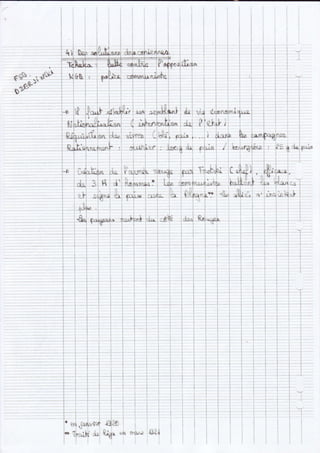 4) Des solutions draconiennes
Tcheka : lutte contre l'opposition
KGB : police communiste
FSB
DZERJINSKI
→ Il faut rétablir un semblant de vie économique
Nationalisation (intervention de l'Etat)
Réquisition des vivres (blé, pain, ...) dans les campagnes
Rationnement : ouvrier : 200g de pain / bourgeois : 25 g de pain
→ Création de l'armée rouge par Trotski (chef), efficace,
de 3 M d'hommes* Les communistes battent les blancs
et signe la paix avec la Pologne** les alliés n'insistent
plus
Les paysans restent du côté des Rouges
* en janvier 1920
** Traité de Riga en mars 1921